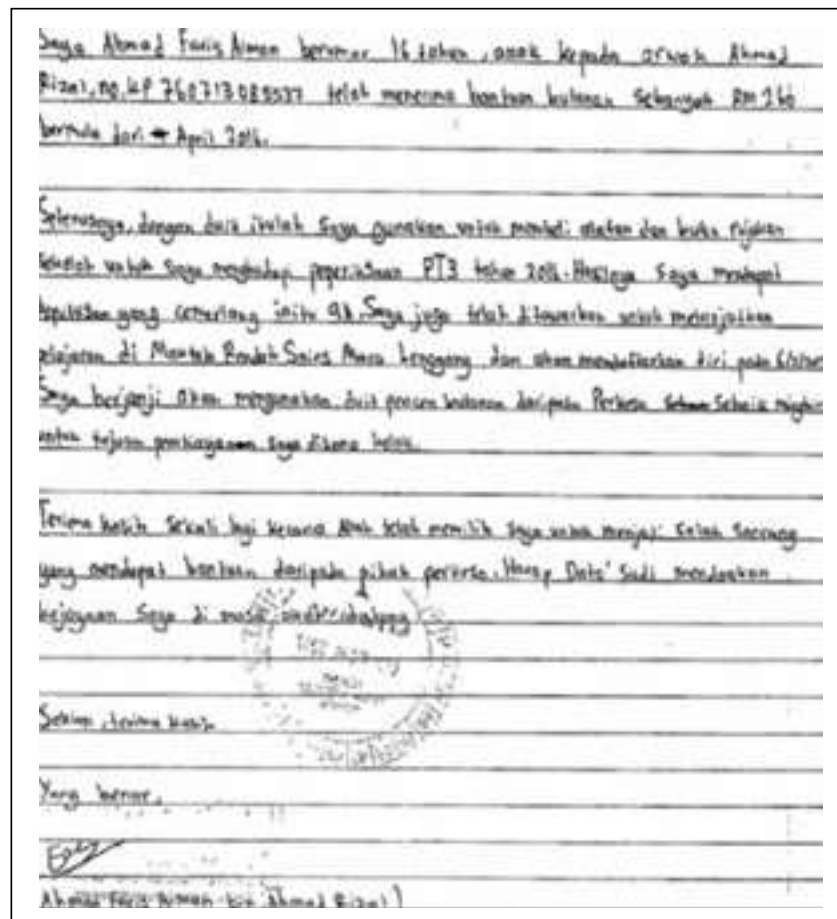 Saya Ahmad Faris Aiman berumur 16 tahun, anak kepada arwah Ahmad
Rizal, no. KP telah menerima bantuan bulanan sebanyak RM 260
bermula dari April 2016.
Seterusnya, dengan duit itulah saya gunakan untuk membeli alatan dan buku rujukan
sekolah untuk saya menghadapi peperiksaan PT3 tahun 2016. Hasilnya saya mendapat
keputusan yang cemerlang iaitu 9A. Saya juga telah ditawarkan untuk melanjutkan
pelajaran di Maktab Rendah Sains Mara Lenggong dan akan mendaftarkan diri pada
Saya berjanji akan menggunakan duit pencen bulanan daripada Perkeso sebaik mungkin
untuk tujuan saya disana kelak.
Terima kasih sekali lagi kerana telah memilih saya untuk menjadi salah seorang
yang mendapat bantuan daripada pihak perkeso. Harap Dato' Sudi mendoakan
kejayaan saya di masa akan
Sekian, terima kasih.
Yang benar,
Ahmad Faris Aiman bin Ahmad Rizal)